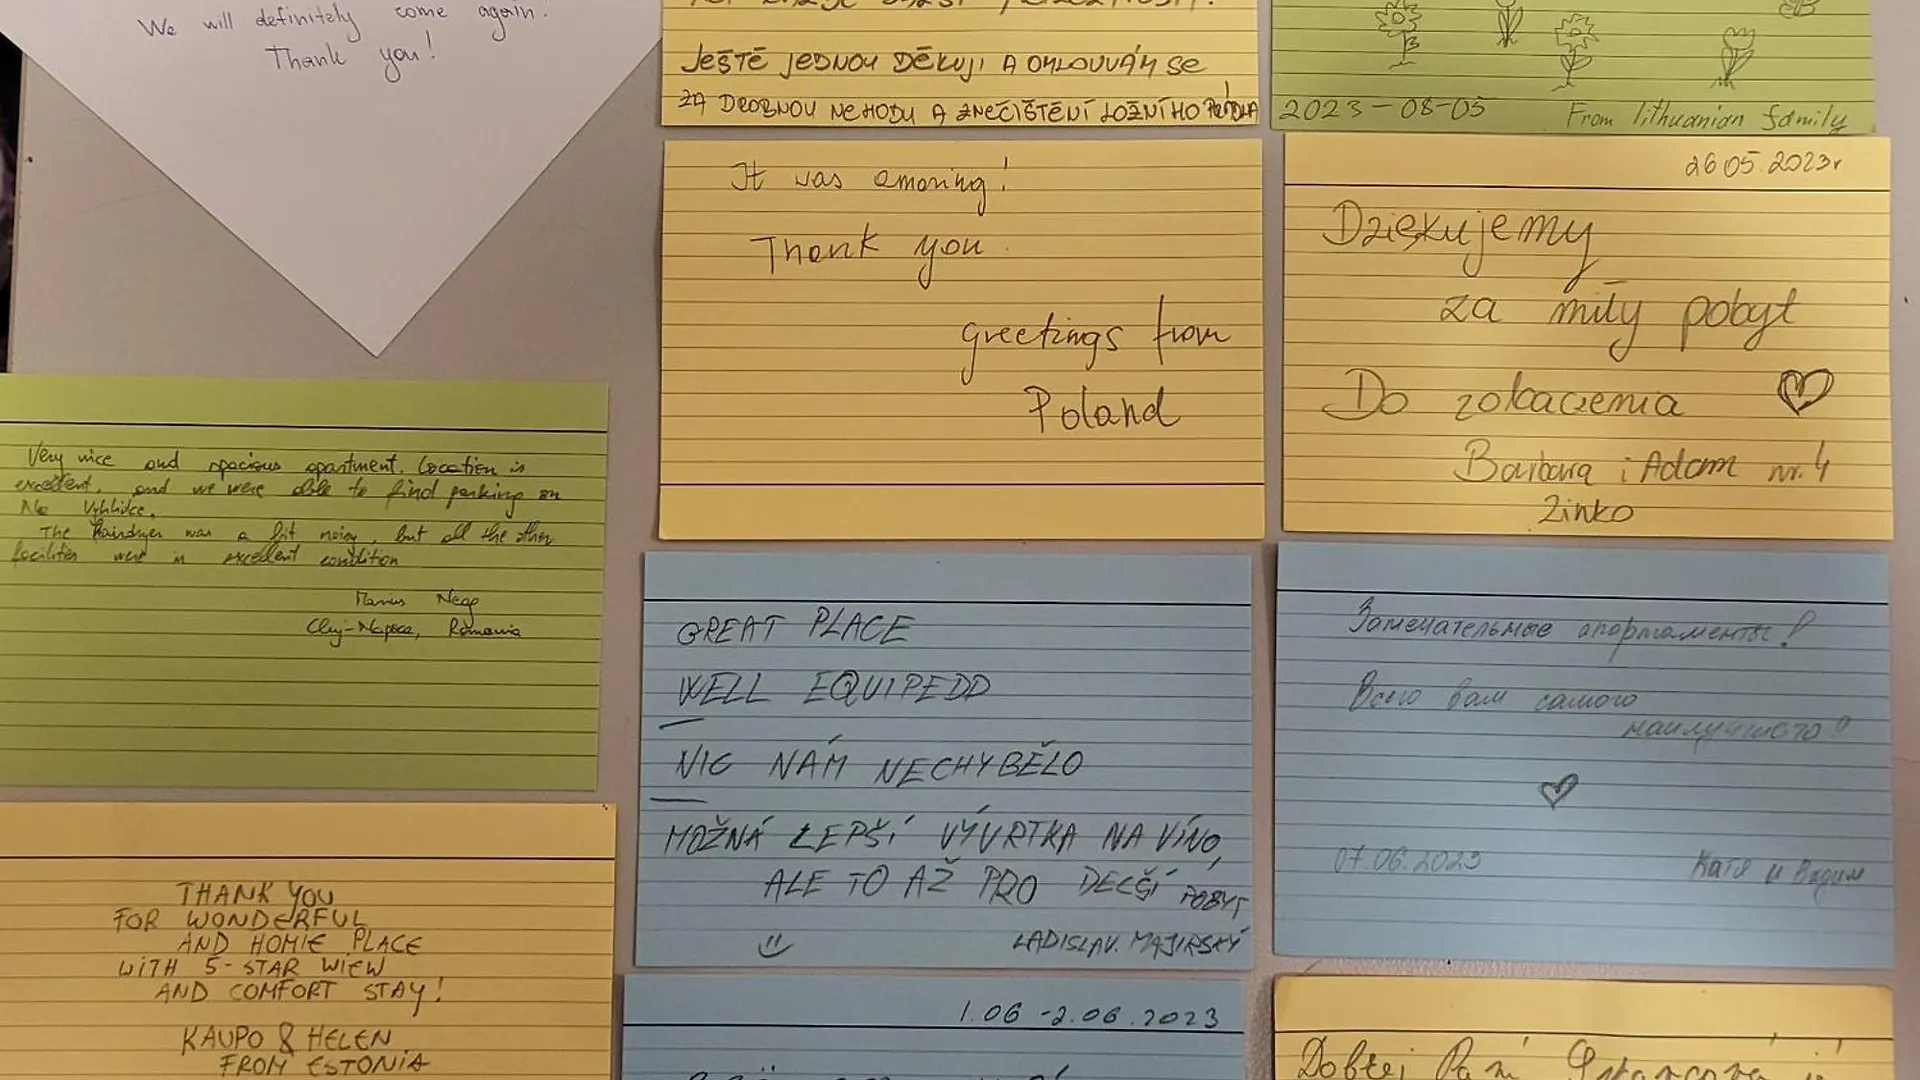 We will definitely come again.
Thank you!
JEŠTĚ JEDNOU DĚKUJI A OMLOUVÁM SE
ZA DROBNOU NEHODU A ZNEČIŠTĚNÍ LOŽNÍHO PRÁDLA
2023-08-05 From lithuanian family
It was amazing!
Thank you.
greetings from
Poland
26 05.2023r
Dziękujemy
za miły pobyt
Do zobaczenia
Barbara i Adam nr. 4
Zinko
Very nice and spacious apartment. Location is
excellent, and we were able to find parking on
Na Vyhlídce.
The hairdryer was a bit noisy, but all the other
facilities were in excellent condition
Marius
Cluj-Napoca, Romania
GREAT PLACE
WELL EQUIPEDD
NIC NÁM NECHYBĚLO
MOŽNÁ LEPŠÍ VÝVRTKA NA VÍNO,
ALE TO AŽ PRO DELŠÍ POBYT
LADISLAV. MAJIRSKÝ
Замечательные апартаменты!
Всего вам самого
наилучшего!
07.06.2023 Катя и Вадим
THANK YOU
FOR WONDERFUL
AND HOMIE PLACE
WITH 5-STAR WIEW
AND COMFORT STAY!
KAUPO & HELEN
FROM ESTONIA
1.06 -2.06.2023